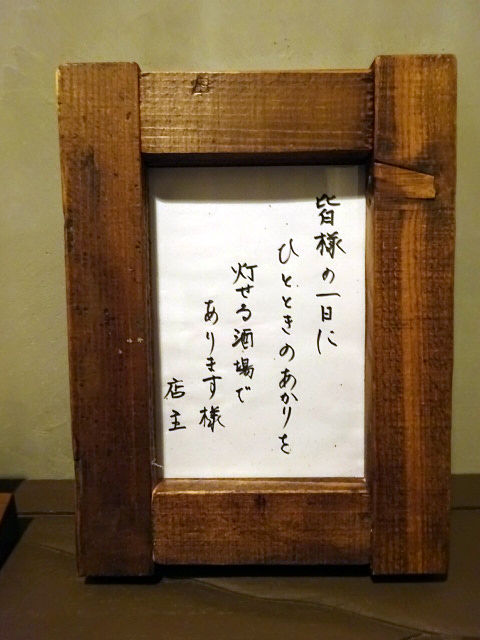 皆様の一日に
ひとときのあかりを
灯せる酒場で
あります様
店主